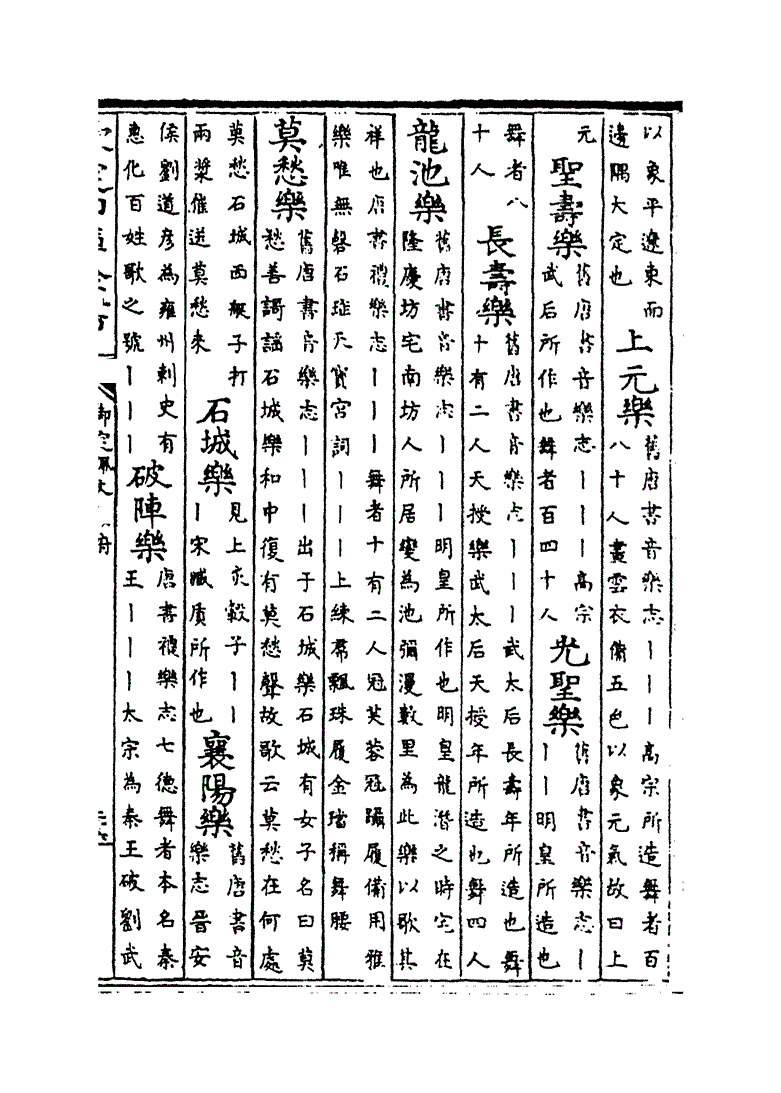 以象平遼東而
邊隅大定也
上元樂
舊唐書音樂志丨丨丨高宗所造舞者百
八十人畫雲衣備五色以象元氣故曰上
元
聖壽樂
舊唐書音樂志丨丨丨高宗
武后所作也舞者百四十人
光聖樂
舊唐書音樂志丨
丨丨明皇所造也
舞者八
十人
長壽樂
舊唐書音樂志丨丨丨武太后長壽年所造也舞
十有二人天授樂武太后天授年所造也舞四人
龍池樂
舊唐書音樂志丨丨丨明皇所作也明皇龍潛之時宅在
隆慶坊宅南坊人所居變為池彌漫數里為此樂以歌其
祥也唐書禮樂志丨丨丨舞者十有二人冠芙蓉冠躡履備用雅
樂唯無磬石珪天寳宮詞丨丨丨上練帬飄珠履金璫稱舞腰
莫愁樂
舊唐書音樂志丨丨丨出于石城樂石城有女子名曰莫
愁善謌謡石城樂和中復有莫愁聲故歌云莫愁在何處
莫愁石城西艇子打
兩槳催送莫愁來
石城樂
見上炙轂子丨丨
丨宋臧質所作也
襄陽樂
舊唐書音
樂志晉安
侯劉道彥為雍州刺史有
惠化百姓歌之號丨丨丨
破陣樂
唐書禮樂志七德舞者本名秦
王丨丨丨太宗為秦王破劉武